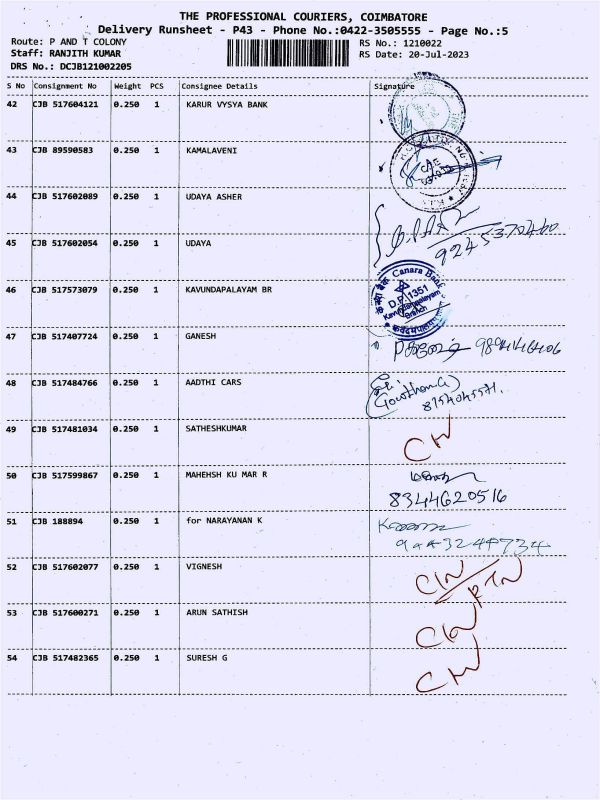 THE PROFESSIONAL COURIERS, COIMBATORE
Delivery Runsheet - P43 - Phone No.:0422-3505555 - Page No.:5
Route: P AND T COLONY
Staff: RANJITH KUMAR
DRS No.: DCJB121002205
RS No.: 1210022
RS Date: 20-Jul-2023
S No Consignment No Weight PCS Consignee Details Signature
42 CJB 517604121 0.250 1 KARUR VYSYA BANK
43 CJB 89590583 0.250 1 KAMALAVENI
44 CJB 517602089 0.250 1 UDAYA ASHER
45 CJB 517602054 0.250 1 UDAYA
9245370460
46 CJB 517573079 0.250 1 KAVUNDAPALAYAM BR
Canara Bank
D.P. 1351
Kavundampalayam
Branch
47 CJB 517407724 0.250 1 GANESH
48 CJB 517484766 0.250 1 AADTHI CARS
49 CJB 517481034 0.250 1 SATHESHKUMAR
50 CJB 517599867 0.250 1 MAHEHSH KU MAR R
8344620516
51 CJB 188894 0.250 1 for NARAYANAN K
52 CJB 517602077 0.250 1 VIGNESH
53 CJB 517600271 0.250 1 ARUN SATHISH
54 CJB 517482365 0.250 1 SURESH G